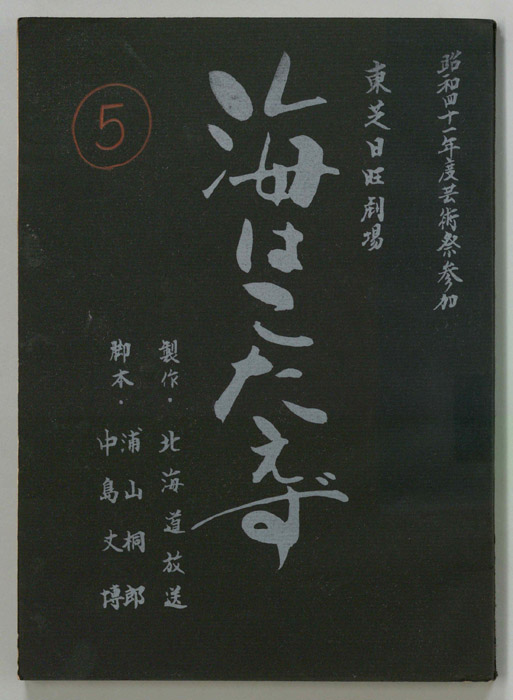 昭和四十一年度芸術祭参加
東芝日曜劇場
海はこたえず
製作・北海道放送
脚本・浦山桐郎
中島丈博
5